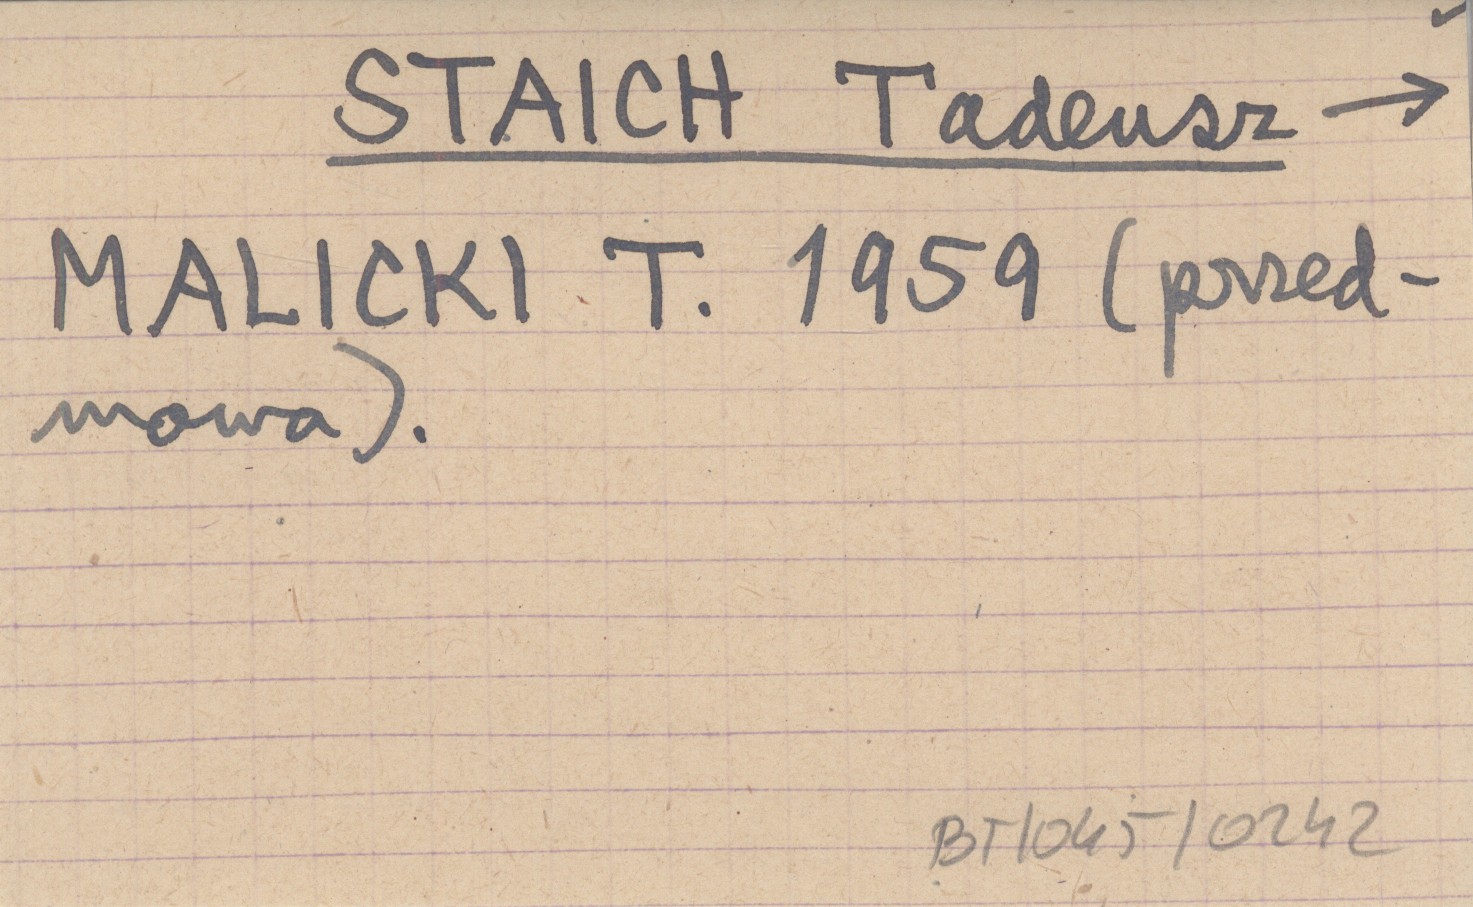 STAICH Tadeusz →
MALICKI T. 1959 (przed-
mowa).
BT/045/0242